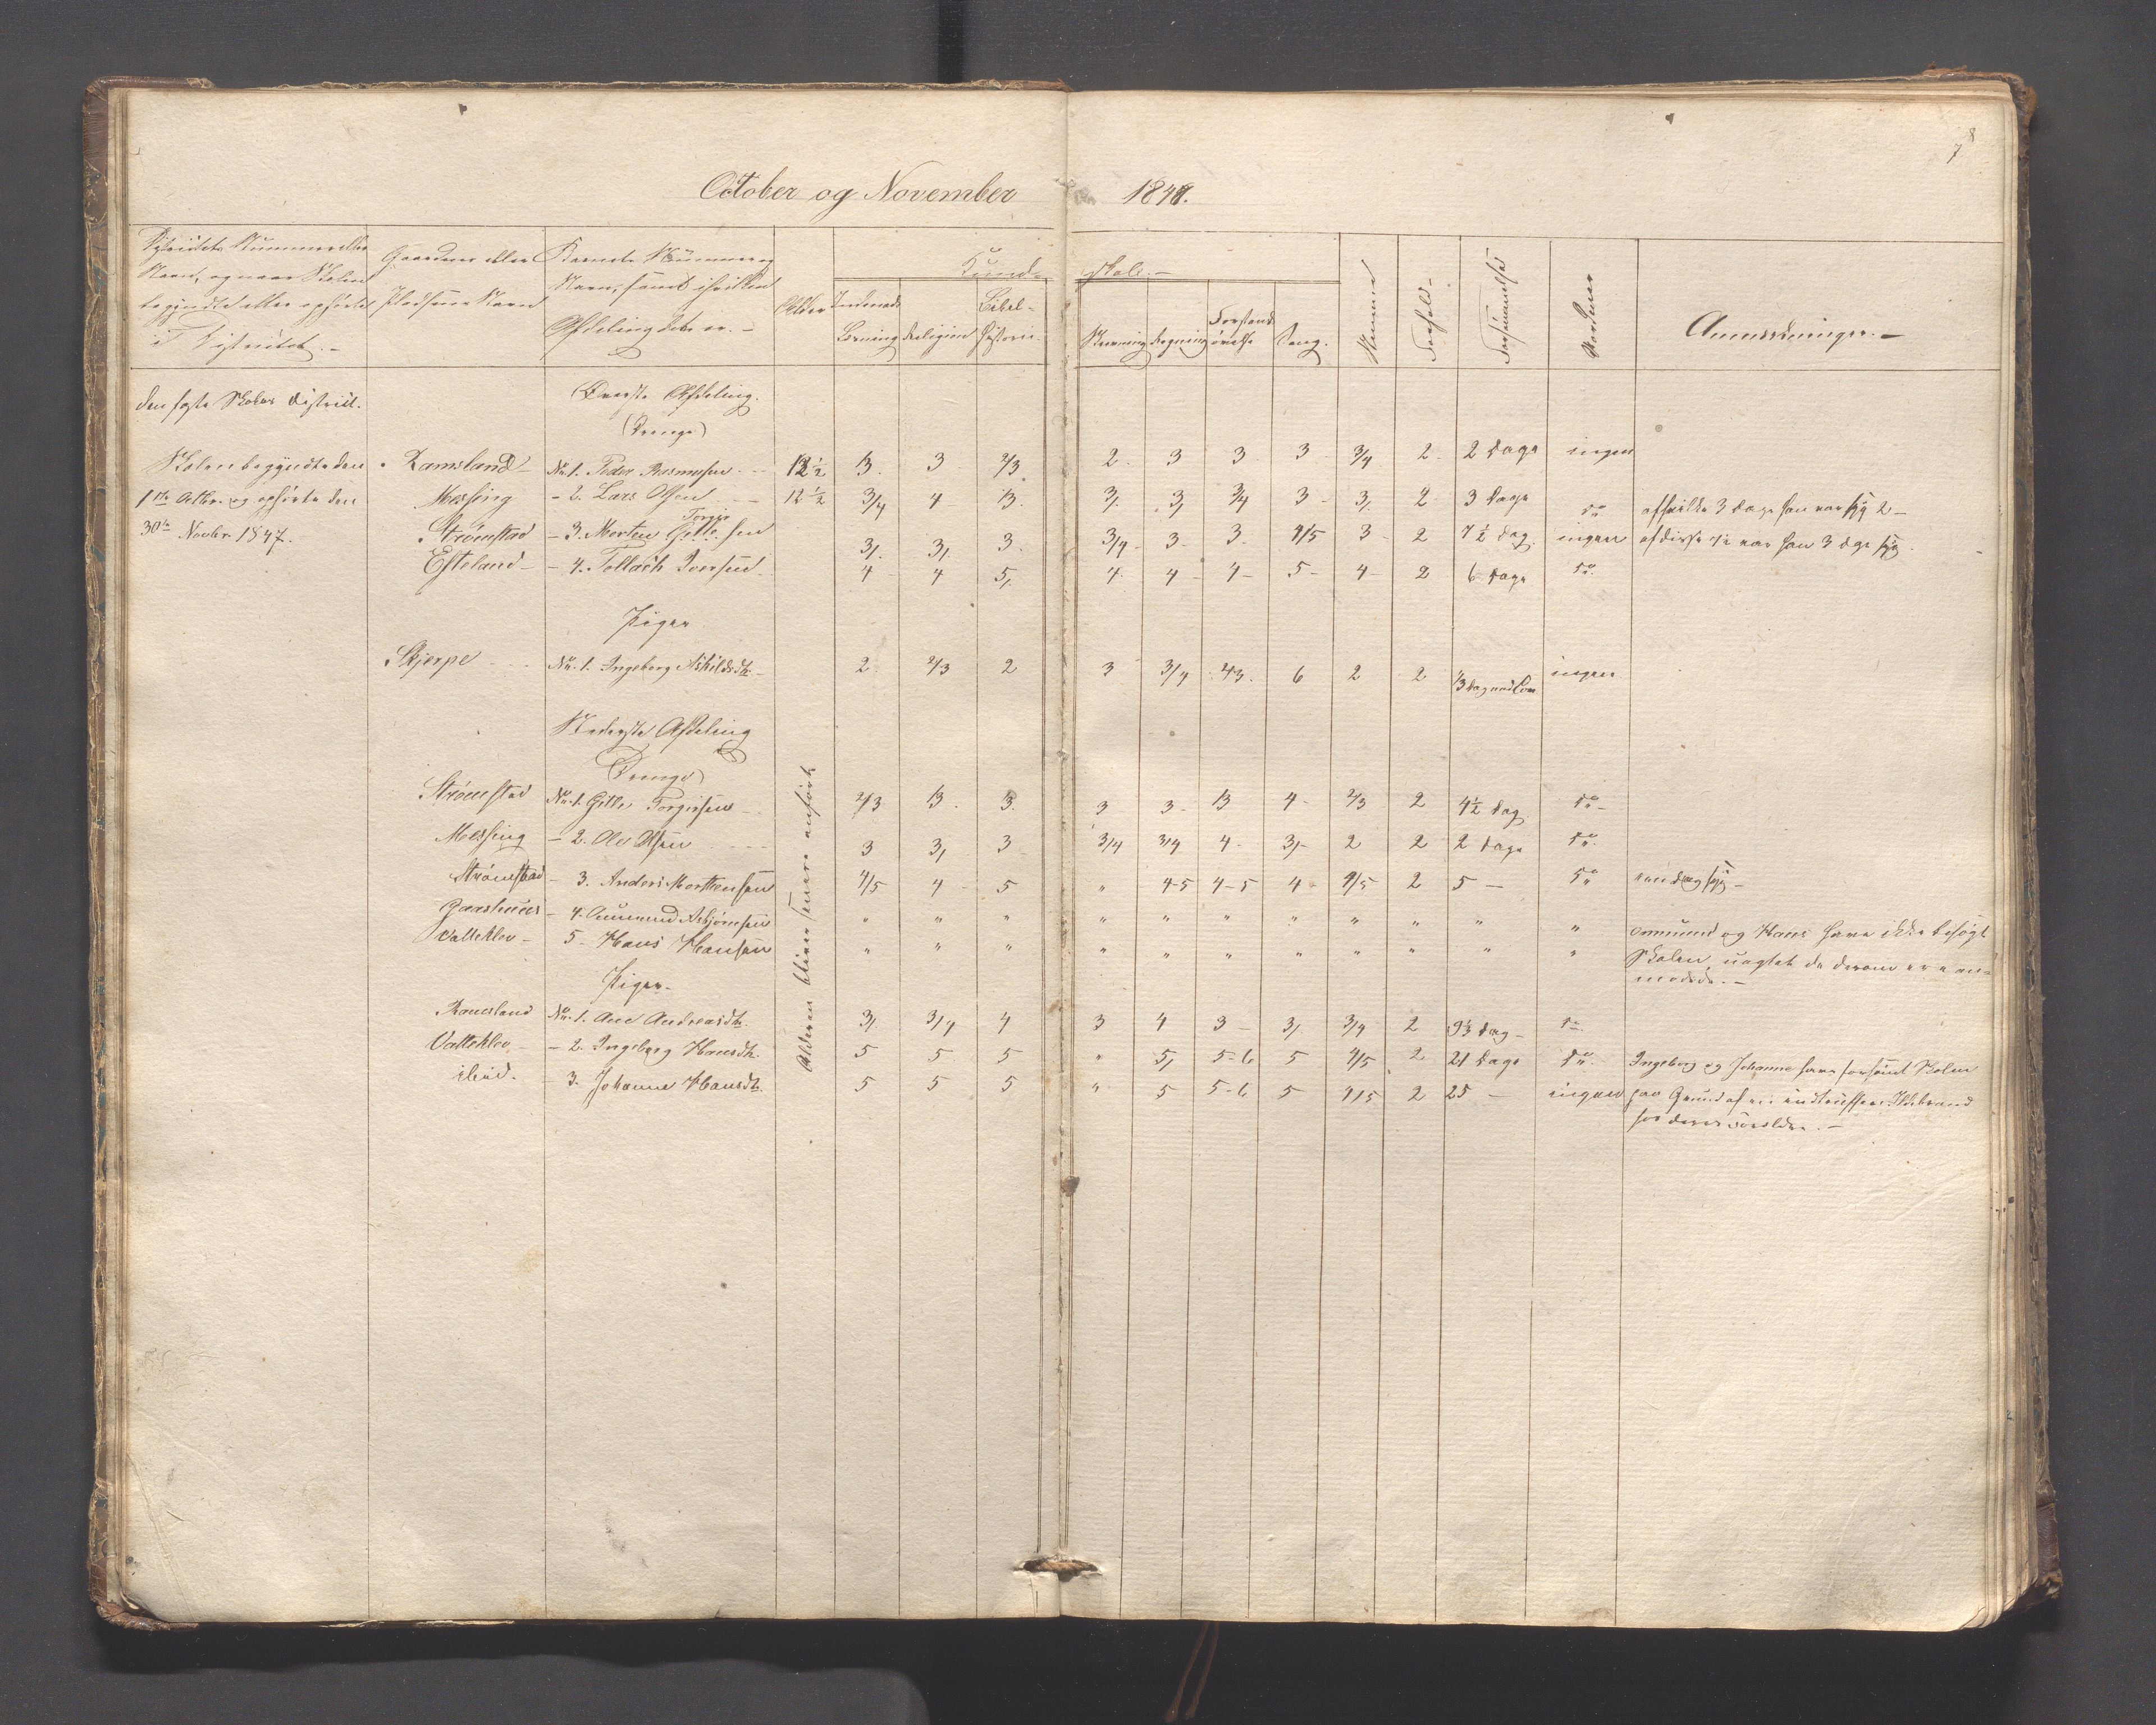 8
7
October og November 1847.
Distriktets Nummer eller
Navn, og naar Skolen
begyndte eller ophørte
i Distriktet.-
Gaardens eller
Pladsens Navn
Barnets Nummer og
Navn, samt i hvilken
Afdeling det er.-
Alder
Kund- skab.-
Indenads
Læsning
Religion
Bibel-
Historie.
Skrivning
Regning
Forstands
øvelse
Sang.
Nemme
Forhold-
Forsømmelse
Anmærkninger.-
Øverste Afdeling.
(Drenge)
Skolen begyndte den
1ste Octbr. og ophørte den
30te Novbr. 1847.
Ramsland No. 1. Peder Rasmussen 12½ 3. 3 2/3 2. 3 3. 3 3/4 2. 2 Dage ingen
Messing - 2. Lars Olsen 12½ 3/4 4 3. 3/. 3/ 3/4 3 3/. 2 3 Dage do
Torgir
Strømstad - 3. Morten sen 3/. 3/. 3. 3/4 3 3. 4/5 3 2 7½ Dag. ingen
Efteland - 4. Tollach Iversen 4 4 5/. 4 4 4 5 4 2 6 Dage do
Piger
Skjerpe No. 1. Ingeborg Askildsdtr. 2 2/3 2 3 3/4 2/3. 6 2 2 ingen
Nederste Afdeling
(Drenge)
Alderen bliver senere anført
Strømstad No. 1. Gitle Torgirsen 2/3 3. 3. 3 3 3 4 2/3 2 4½ Dag do
Messing - 2. Ole Olsen 3 3/ 3 3/4 3/4 4 3/ 2 2 2 Dage do
Strømstad - 3. Anders Mortensen 4/5 4 5 " 4-5 4-5 4 4/5 2 5 - do
- 4. Aumund Asbjørnsen " " " " " " " " " " "
Vatteklev - 5. Hans Hansen " " " " " " " " " " "
Omund og Hans have ikke besøgt
Skolen, uagtet de derom ere an-
modede.-
Piger
Ramsland No. 1. Ane Andreasdtr. 3/ 3/4 4 3 4 3 3/. 3/4 2 9½ Dag do
Vatteklev - 2. Ingeborg Hansdtr. 5 5 5 " 5/ 5-6 5 4/5 2 21 Dage do
ibid. - 3. Johanne Hansdtr. 5 5 5 " 5 5-6 5 4/5 2 25 - ingen
Ingeborg og Johanne have forsømt Skolen
paa Grund af en indtruffen Ildebrand
hos deres Forældre.-